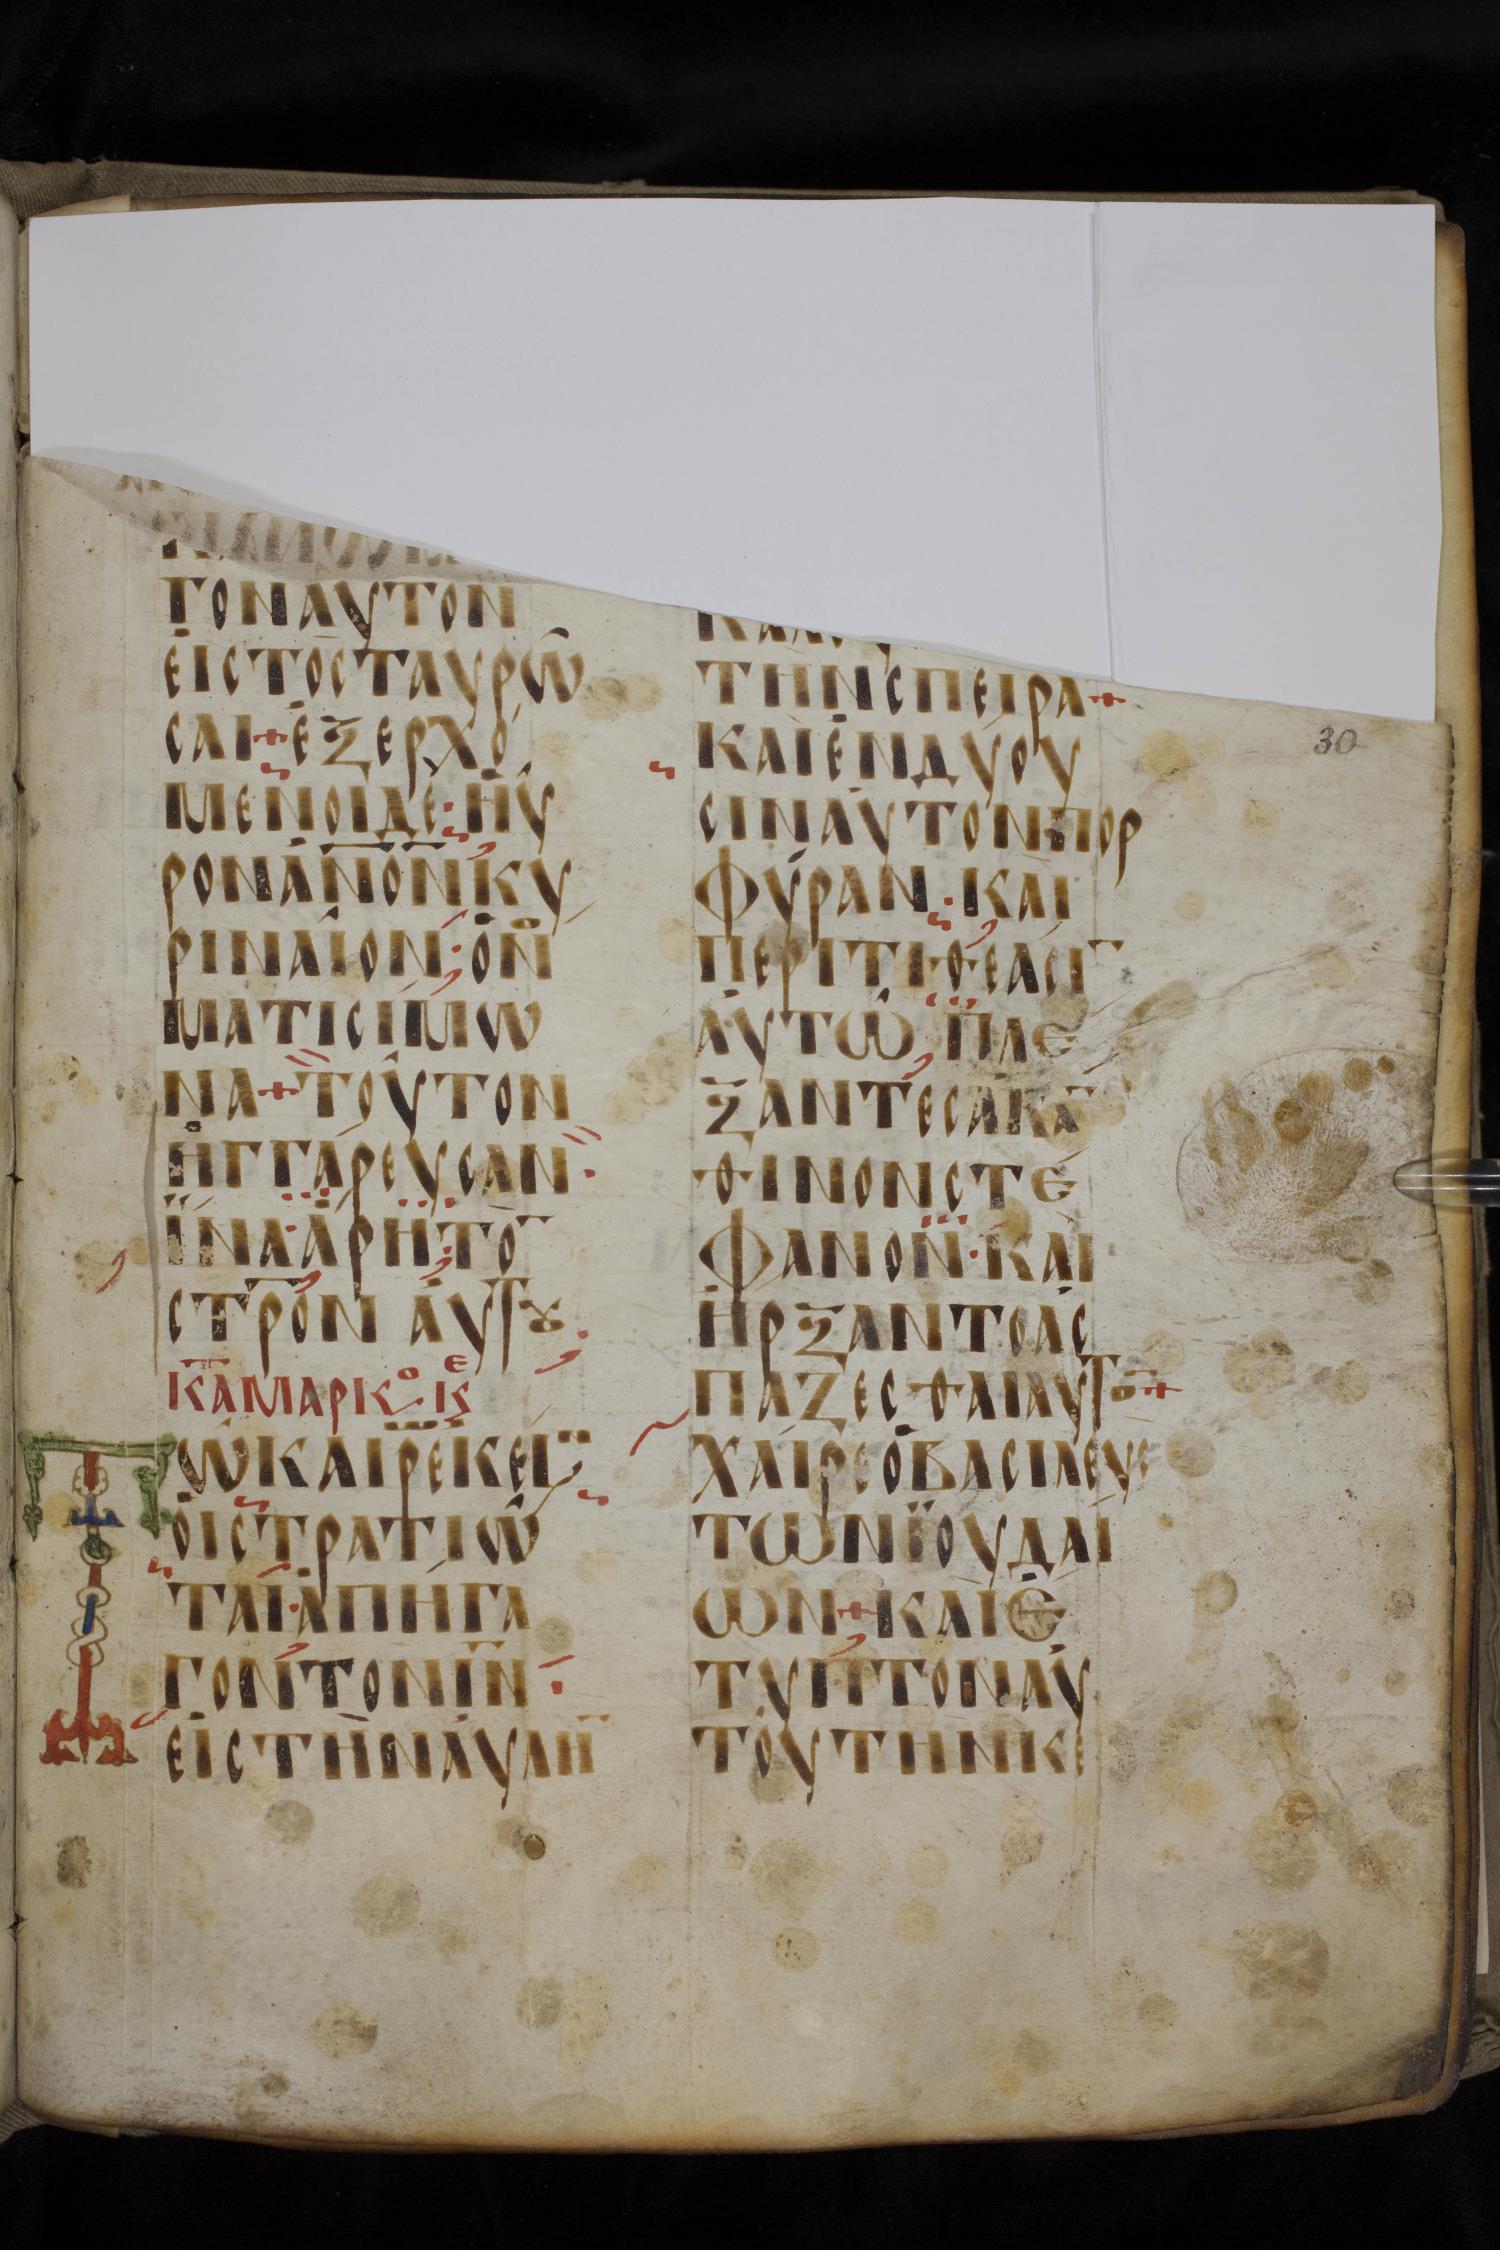 ΓΟΝΑΥΤΟΝ
ΕΙΣΤΟΣΤΑΥΡΩ
ΣΑΙ+ΕΞΕΡΧΟ
ΜΕΝΟΙΔΕ·ΗΥ
ΡΟΝΑΝΟΝΚΥ
ΡΙΝΑΙΟΝ·ΟΝΟ
ΜΑΤΙΣΙΜΩ
ΝΑ+ΤΟΥΤΟΝ
ΗΓΓΑΡΕΥΣΑΝ·
ΪΝΑ·ΑΡΗ·ΤΟ̄
ΣΤΡΟ̄Ν ΑΥΤȢ·
ΚΑΤΑΜΑΡΚΟΝ ΚΕΦ
ΤΩΚΑΙΡΕΚΕΙ
ΟΙΣΤΡΑΤΙΩ
ΤΑΙ·ΑΠΗΓΑ
ΓΟΝΤΟΝῙΝ̄·
ΕΙΣΤΗΝΑΥΛΗ̄
ΤΗΝΣΠΕΙΡΑ+
ΚΑΙΕΝΔΥΟΥ
ΣΙΝΑΥΤΟΝΠΟΡ
ΦΥΡΑΝ·ΚΑΙ
ΠΕΡΙΤΙΘΕΑΣῙ
ΑΥΤΩ ΠΛΕ
ΞΑΝΤΕΣΑΚᾹ
ΘΙΝΟΝΣΤΕ
ΦΑΝΟΝ·ΚΑΙ
ΗΡΞΑΝΤΟΑΣ
ΠΑΖΕΣΘΑΙΑΥΤΟ̄+
ΧΑΙΡΕΟΒΑΣΙΛΕΥΣ
ΤΩΝΪΟΥΔΑΙ
ΩΝ+ΚΑΙΕ
ΤΥΠΤΟΝΑΥ
ΤΟΥΤΗΝΚΕ
30